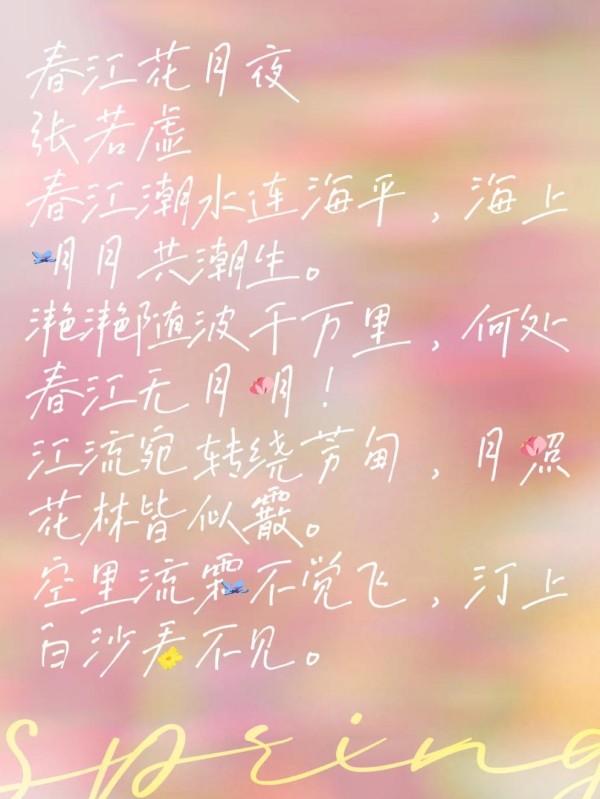 春江花月夜
张若虚
春江潮水连海平，海上
明月共潮生。
滟滟随波千万里，何处
春江无月明！
江流宛转绕芳甸，月照
花林皆似霰。
空里流霜不觉飞，汀上
白沙看不见。
spring